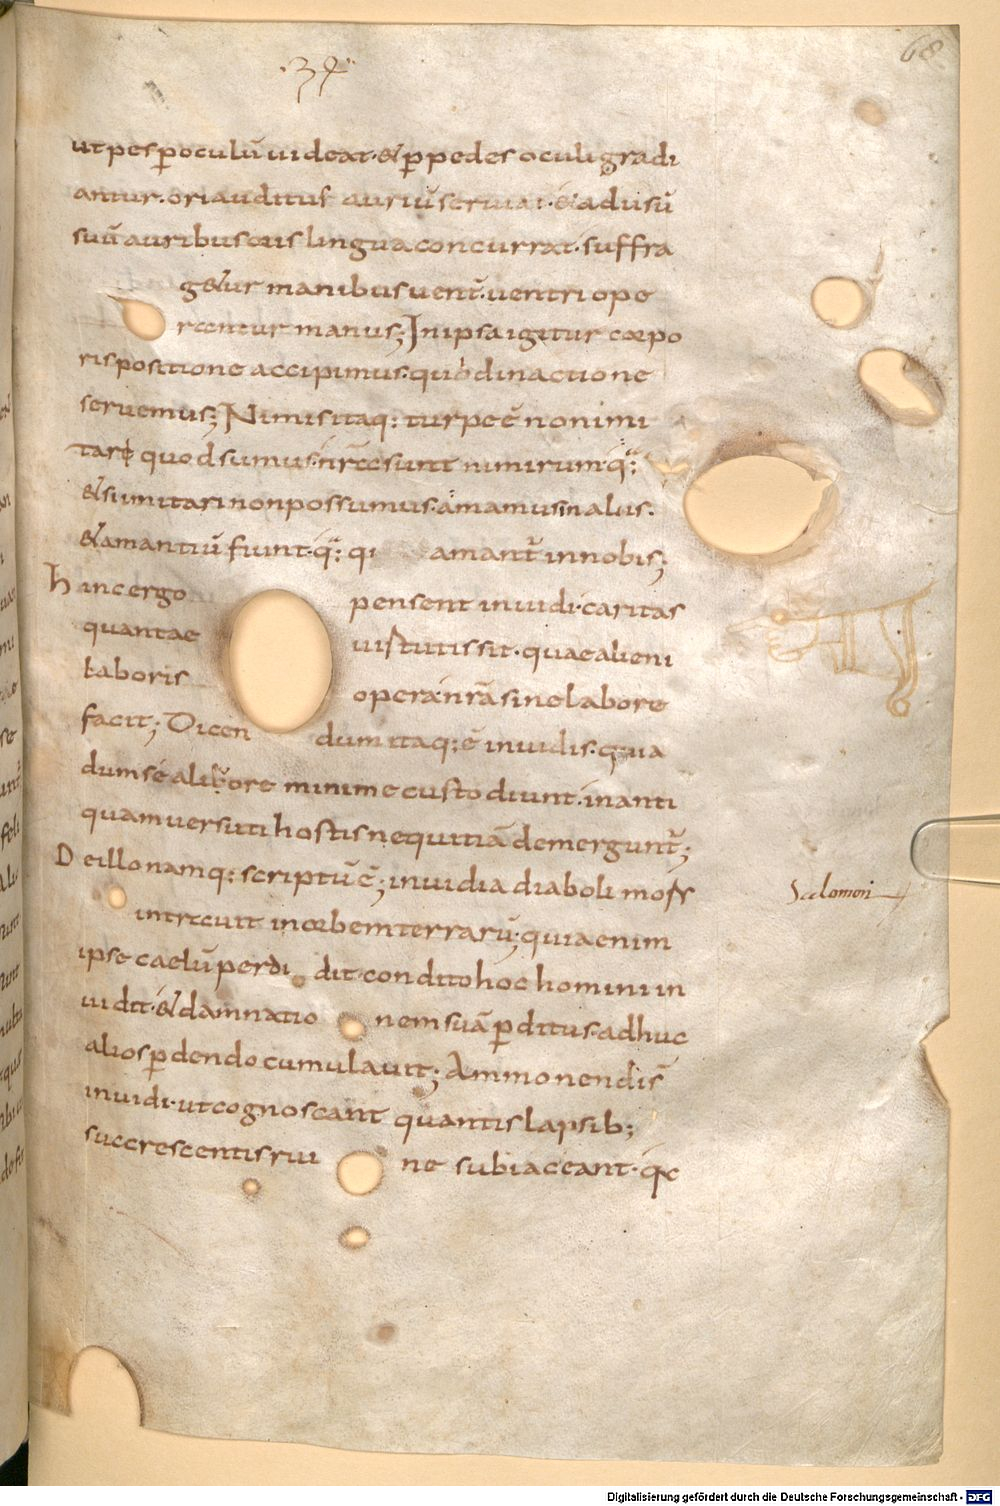 68
ut pes p oculū uideat· & p pedes oculi gradi
antur· ori auditus auriū seruiat· & ad usū
suū auribus oris lingua concurrat· suffra
g&ur manibus uent̄· uentri ope
rentur manus; In ipsa igitur corpo
ris positione accipimus· quod in actione
seruemus; Nimis itaq: turpe ē non imi
tare quod sumus· nr̄a sunt nimirum· q:
&si imitari non possumus· amamus in aliis·
& amantiū fiunt· q: amant̄ in nobis;
Hinc ergo pensent inuidi· caritas
quantae uirtutis sit· quae alieni
laboris opera· nr̄a sine labore
facit; Dicendum itaq: ē inuidis· quia
dum se a liuore minime custodiunt· in anti
quam uersuti hostis nequitiā demergunt̄;
De illo namq: scriptū ē; inuidia diaboli mors
intrauit in orbem terrarū; quia enim
ipse caelū perdidit· condito hoc homini in
uidit· & damnationem suā pditus· adhuc
alios pdendo cumulauit; Ammonendi s̄
inuidi· ut cognoscant quantis lapsib;
succrescentis ruine subiaceant·
Salomon
Digitalisierung gefördert durch die Deutsche Forschungsgemeinschaft - DFG